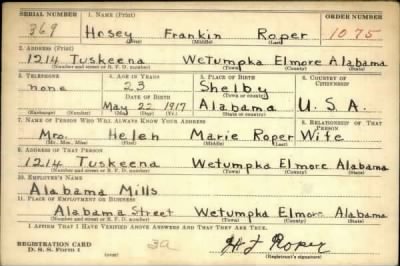 SERIAL NUMBER 1. NAME (Print) ORDER NUMBER
369 Hosey Frankin Roper 1075
(First) (Middle) (Last)
2. ADDRESS (Print)
1214 Tuskeena Wetumpka Elmore Alabama
(Number and street or R. F. D. number) (Town) (County) (State)
3. TELEPHONE 4. AGE IN YEARS 5. PLACE OF BIRTH 6. COUNTRY OF CITIZENSHIP
none 23 Shelby
DATE OF BIRTH (Town or county)
May 22 1917 Alabama U. S. A.
(Exchange) (Number) (Mo.) (Day) (Yr.) (State or country)
7. NAME OF PERSON WHO WILL ALWAYS KNOW YOUR ADDRESS 8. RELATIONSHIP OF THAT PERSON
Mrs. Helen Marie Roper Wife
(Mr., Mrs., Miss) (First) (Middle) (Last)
9. ADDRESS OF THAT PERSON
1214 Tuskeena Wetumpka Elmore Alabama
(Number and street or R. F. D. number) (Town) (County) (State)
10. EMPLOYER'S NAME
Alabama Mills
11. PLACE OF EMPLOYMENT OR BUSINESS
Alabama Street Wetumpka Elmore Alabama
(Number and street or R. F. D. number) (Town) (County) (State)
I AFFIRM THAT I HAVE VERIFIED ABOVE ANSWERS AND THAT THEY ARE TRUE.
REGISTRATION CARD
D. S. S. Form 1 (over) H F Roper
(Registrant's signature)